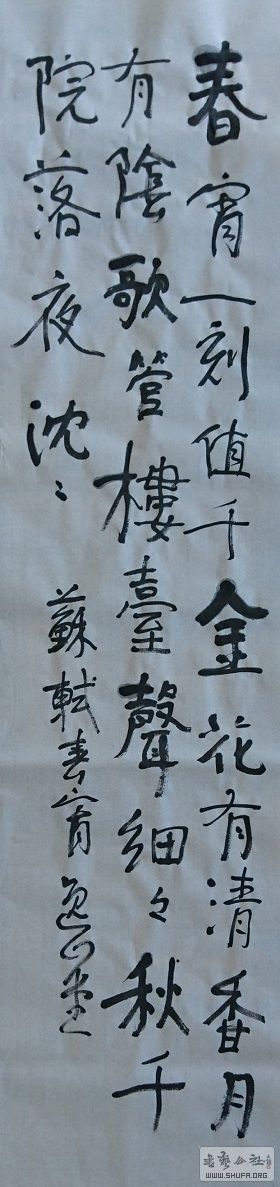 春宵一刻值千金花有清香月
有陰歌管樓臺聲細々秋千
院落夜沈〻
蘇軾春宵
书艺公社
WWW.SHUFA.ORG